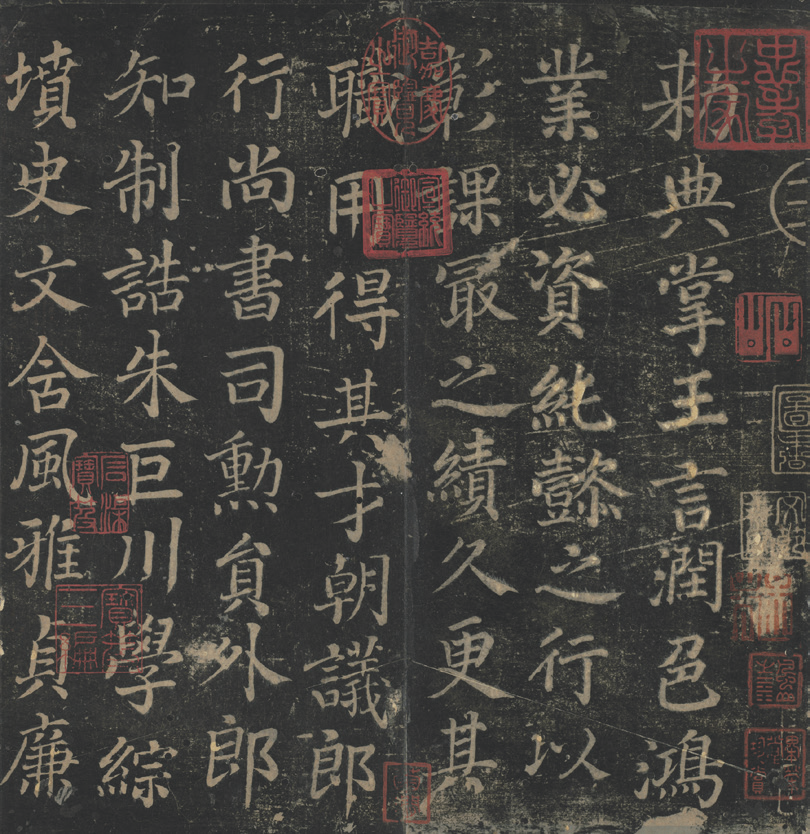 勑典掌王言潤色鴻
業必資純懿之行以
彰課冣之績久更其
職用得其才朝議郎
行尚書司勳貟外郎
知制誥朱巨川學綜
墳史文含風雅貞廉